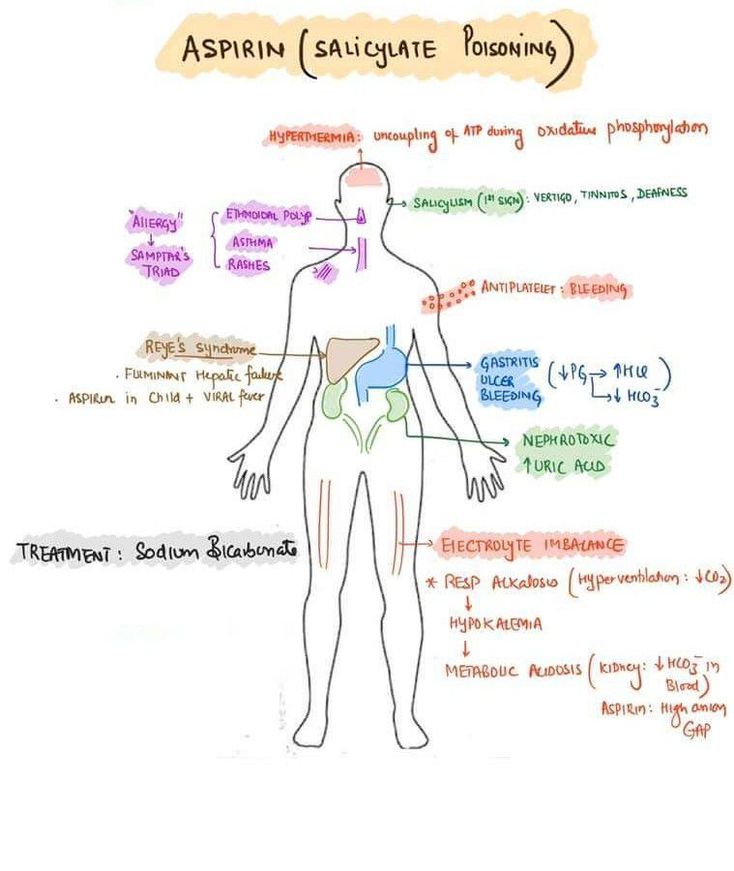 ASPIRIN (SALICYLATE POISONING)
HYPERTHERMIA: uncoupling of ATP during oxidative phosphorylation
SALICYLISM (1st SIGN): VERTIGO, TINNITOS, DEAFNESS
"AllERGY"
↓
SAMPTAR'S
TRIAD
ETHMOIDAL POLYP
ASTHMA
RASHES
ANTIPLATELET: BLEEDING
REYE'S Syndrome
. FULMINANT Hepatic failure
. ASPIRIN in Child + VIRAL fever
GASTRITIS
ULCER
BLEEDING
(↓PG → ↑HCl
↳ ↓ HCO3-)
NEPHROTOXIC
↑URIC ACID
TREATMENT: Sodium Bicarbonate
ElECTROLYTE IMBALANCE
* RESP Alkalosis (Hyperventilation: ↓CO2)
↓
HYPOKALEMIA
↓
METABOLIC ACIDOSIS (Kidney: ↓HCO3- in
Blood)
ASPIRIN: High anion
GAP